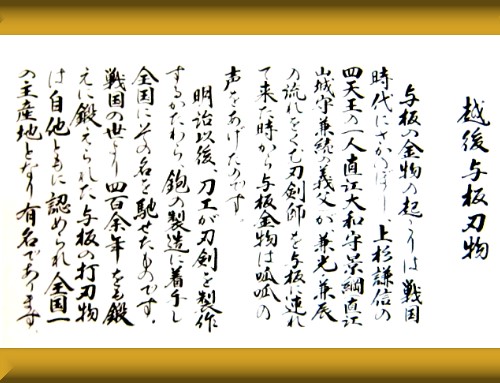 越後与板刃物
与板の金物の起こりは戦国
時代にさかのぼり、上杉謙信の
四天王の一人直江大和守景綱直江
山城守兼続の義父が兼光兼辰
の流れをくむ刃剣師を与板に連れ
て来た時から与板金物は呱呱の
声をあげたのです。
明治以後、刀工が刃剣を製作
するかたわら、鉋の製造に着手し
全国にその名を馳せたものです。
戦国の世より四百余年をも鍛
えに鍛えられた与板の打刃物
は自他ともに認められ全国一
の主産地となり有名であります。